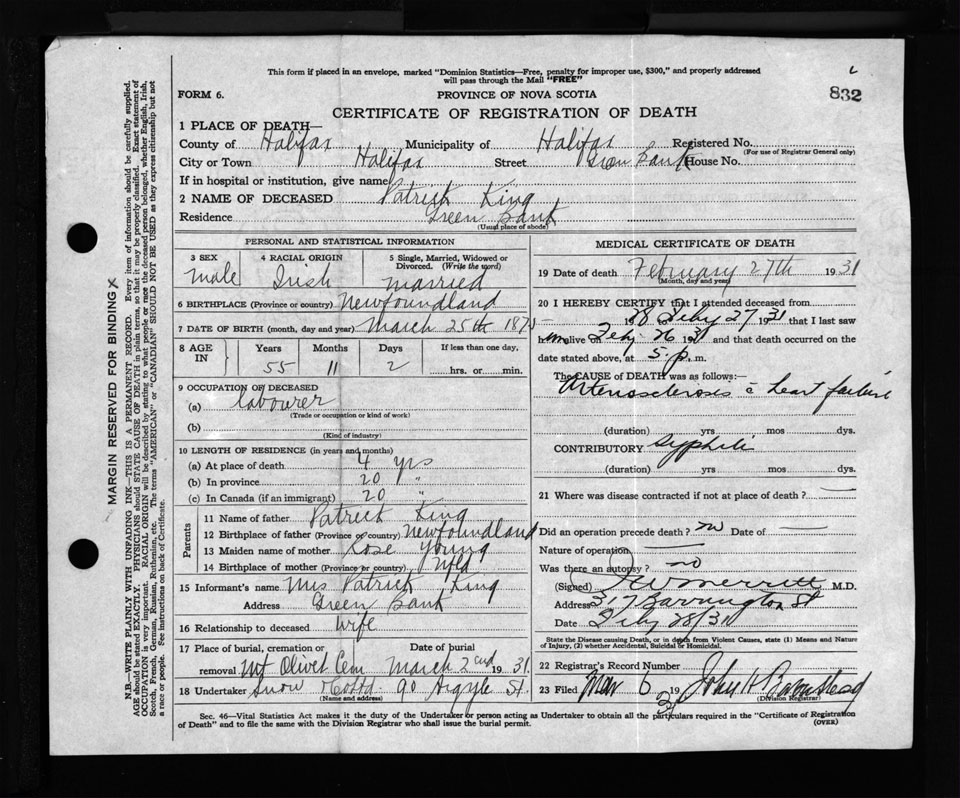 This form if placed in an envelope, marked "Dominion Statistics—Free, penalty for improper use, $300," and properly addressed
will pass through the Mail "FREE"
832
FORM 6. PROVINCE OF NOVA SCOTIA
CERTIFICATE OF REGISTRATION OF DEATH
1 PLACE OF DEATH—
County of Halifax Municipality of Halifax Registered No.
(For use of Registrar General only)
City or Town Halifax Street Green Bank House No.
If in hospital or institution, give name
2 NAME OF DECEASED Patrick King
Residence Green Bank
(Usual place of abode)
PERSONAL AND STATISTICAL INFORMATION
3 SEX 4 RACIAL ORIGIN 5 Single, Married, Widowed or
Divorced. (Write the word)
male Irish married
6 BIRTHPLACE (Province or country) Newfoundland
7 DATE OF BIRTH (month, day and year) March 25th 1875
8 AGE IN Years Months Days If less than one day,
55 11 2 hrs. or min.
9 OCCUPATION OF DECEASED
(a) labourer
(Trade or occupation or kind of work)
(b)
(Kind of industry)
10 LENGTH OF RESIDENCE (in years and months)
(a) At place of death 4 yrs
(b) In province 20 "
(c) In Canada (if an immigrant) 20 "
Parents
11 Name of father Patrick King
12 Birthplace of father (Province or country) Newfoundland
13 Maiden name of mother Rose Young
14 Birthplace of mother (Province or country) Nfld
15 Informant's name Mrs Patrick King
Address Green Bank
16 Relationship to deceased Wife
17 Place of burial, cremation or Date of burial
removal Mt Olivet Cem March 2nd 1931.
18 Undertaker Snow & Co Ltd. 90 Argyle St.
(Name and address)
MEDICAL CERTIFICATE OF DEATH
19 Date of death February 27th 1931
(Month, day and year)
20 I HEREBY CERTIFY that I attended deceased from
1928 to Feby 27 1931 that I last saw
him alive Feby 26 1931 and that death occurred on the
date stated above, at 5 p. m.
The CAUSE of DEATH was as follows:—
Arteriosclerosis c̄ heart failure
(duration) yrs mos dys.
CONTRIBUTORY Syphilis
(duration) yrs mos dys.
21 Where was disease contracted if not at place of death? —
Did an operation precede death? no Date of —
Nature of operation —
Was there an autopsy? no
(Signed) Merritt M.D.
Address 317 Barrington St
Date Feby 28/31
State the Disease causing Death, or in death from Violent Causes, state (1) Means and Nature
of Injury, (2) whether Accidental, Suicidal or Homicidal.
22 Registrar's Record Number
23 Filed Mar 6 19 John H Barnstead
(Division Registrar)
Sec. 46—Vital Statistics Act makes it the duty of the Undertaker or person acting as Undertaker to obtain all the particulars required in the "Certificate of Registration
of Death" and to file the same with the Division Registrar who shall issue the burial permit. (OVER)
MARGIN RESERVED FOR BINDING
N.B.—WRITE PLAINLY WITH UNFADING INK—THIS IS A PERMANENT RECORD. Every item of information should be carefully supplied.
AGE should be stated EXACTLY. PHYSICIANS should STATE CAUSE OF DEATH in plain terms, so that it may be properly classified. Exact statement of
OCCUPATION is very important. RACIAL ORIGIN will be described by stating to what people or race the deceased person belonged, whether English, Irish,
Scotch, French, German, Russian, Ruthenian, etc. The terms "AMERICAN" or "CANADIAN" SHOULD NOT BE USED as they express citizenship but not
a race or people. See instructions on back of Certificate.